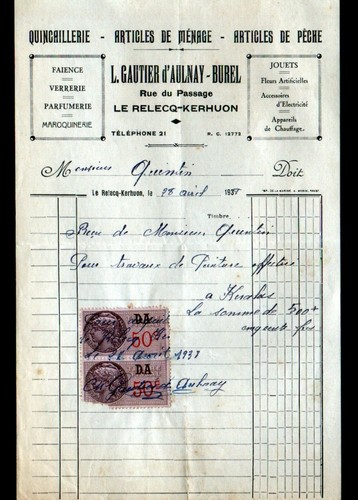 QUINCAILLERIE - ARTICLES DE MÉNAGE - ARTICLES DE PÊCHE
FAIENCE
VERRERIE
PARFUMERIE
MAROQUINERIE
L. GAUTIER d'AULNAY - BUREL
Rue du Passage
LE RELECQ-KERHUON
TÉLÉPHONE 21
R. C. 13773
JOUETS
Fleurs Artificielles
Accessoires
d'Electricité
Appareils
de Chauffage.
Monsieur Quentin Doit
Le Relecq-Kerhuon, le 28 avril 1937
Timbre,
Reçu de Monsieur Quentin
Pour travaux de Peinture effectués
à
La somme de 500+
cinquante frs
DA
50c
1937
DA
50c
Aulnay